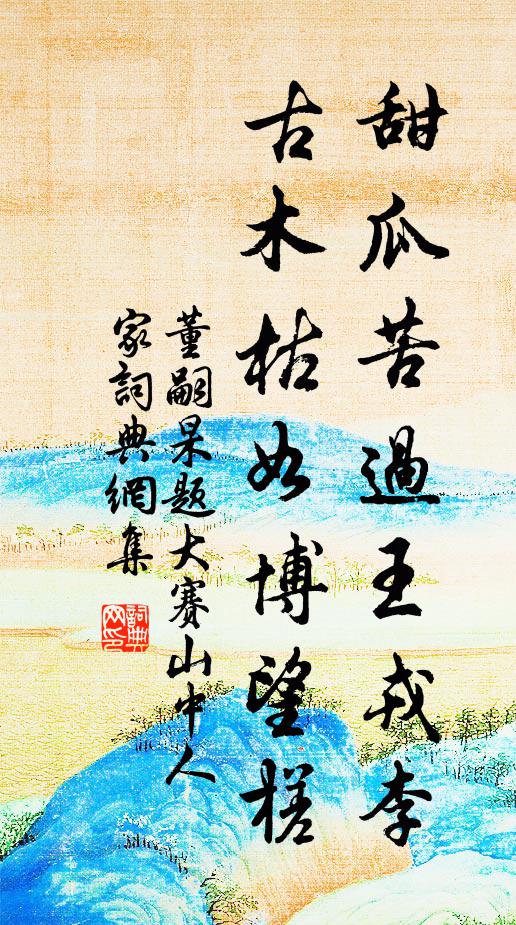 甜瓜苦過王戎李
古木枯如博望槎
董嗣杲题大赛山中人
家詞典網集
詞典网印